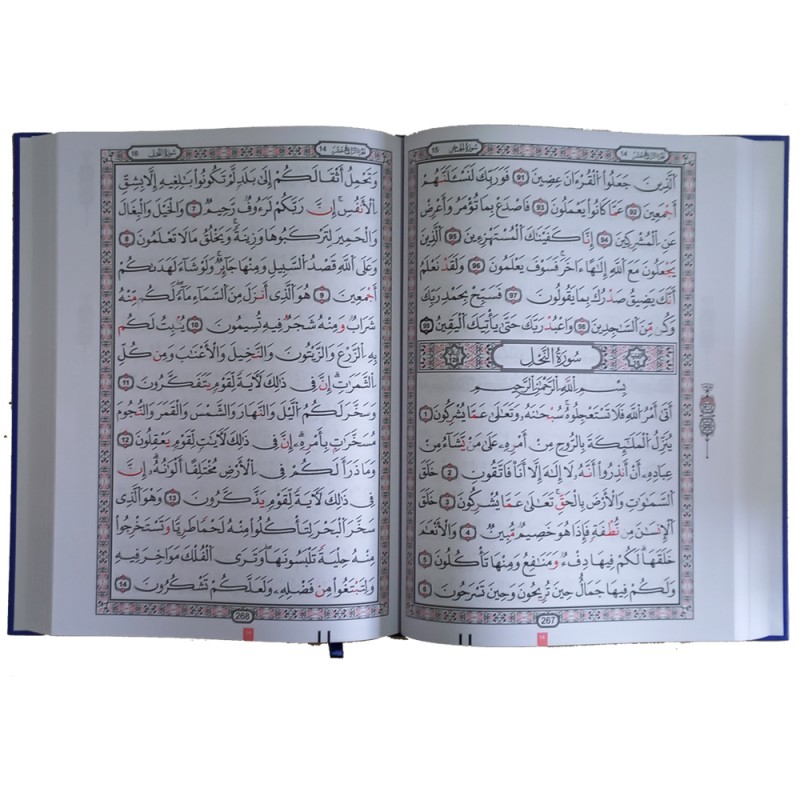 سورة الحجر 15
الجزء الرابع عشر 14
الَّذِينَ جَعَلُوا الْقُرْءَانَ عِضِينَ 91 فَوَرَبِّكَ لَنَسْـَٔلَنَّهُمْ
أَجْمَعِينَ 92 عَمَّا كَانُوا يَعْمَلُونَ 93 فَاصْدَعْ بِمَا تُؤْمَرُ وَأَعْرِضْ
عَنِ الْمُشْرِكِينَ 94 إِنَّا كَفَيْنَاكَ الْمُسْتَهْزِءِينَ 95 الَّذِينَ
يَجْعَلُونَ مَعَ اللَّهِ إِلَٰهًا ءَاخَرَ فَسَوْفَ يَعْلَمُونَ 96 وَلَقَدْ نَعْلَمُ
أَنَّكَ يَضِيقُ صَدْرُكَ بِمَا يَقُولُونَ 97 فَسَبِّحْ بِحَمْدِ رَبِّكَ
وَكُن مِّنَ السَّاجِدِينَ 98 وَاعْبُدْ رَبَّكَ حَتَّىٰ يَأْتِيَكَ الْيَقِينُ 99
سُورَةُ النَّحْلِ
بِسْمِ اللَّهِ الرَّحْمَٰنِ الرَّحِيمِ
أَتَىٰ أَمْرُ اللَّهِ فَلَا تَسْتَعْجِلُوهُ سُبْحَانَهُ وَتَعَالَىٰ عَمَّا يُشْرِكُونَ 1
يُنَزِّلُ الْمَلَائِكَةَ بِالرُّوحِ مِنْ أَمْرِهِ عَلَىٰ مَن يَشَاءُ مِنْ
عِبَادِهِ أَنْ أَنذِرُوا أَنَّهُ لَا إِلَٰهَ إِلَّا أَنَا فَاتَّقُونِ 2 خَلَقَ
السَّمَاوَاتِ وَالْأَرْضَ بِالْحَقِّ تَعَالَىٰ عَمَّا يُشْرِكُونَ 3 خَلَقَ
الْإِنسَانَ مِن نُّطْفَةٍ فَإِذَا هُوَ خَصِيمٌ مُّبِينٌ 4 وَالْأَنْعَامَ
خَلَقَهَا لَكُمْ فِيهَا دِفْءٌ وَمَنَافِعُ وَمِنْهَا تَأْكُلُونَ 5
وَلَكُمْ فِيهَا جَمَالٌ حِينَ تُرِيحُونَ وَحِينَ تَسْرَحُونَ 6
267
14
سورة النحل 16
الجزء الرابع عشر 14
وَتَحْمِلُ أَثْقَالَكُمْ إِلَىٰ بَلَدٍ لَّمْ تَكُونُوا بَالِغِيهِ إِلَّا بِشِقِّ
الْأَنفُسِ إِنَّ رَبَّكُمْ لَرَءُوفٌ رَّحِيمٌ 7 وَالْخَيْلَ وَالْبِغَالَ
وَالْحَمِيرَ لِتَرْكَبُوهَا وَزِينَةً وَيَخْلُقُ مَا لَا تَعْلَمُونَ 8
وَعَلَى اللَّهِ قَصْدُ السَّبِيلِ وَمِنْهَا جَائِرٌ وَلَوْ شَاءَ لَهَدَاكُمْ
أَجْمَعِينَ 9 هُوَ الَّذِي أَنزَلَ مِنَ السَّمَاءِ مَاءً لَّكُم مِّنْهُ
شَرَابٌ وَمِنْهُ شَجَرٌ فِيهِ تُسِيمُونَ 10 يُنبِتُ لَكُم
بِهِ الزَّرْعَ وَالزَّيْتُونَ وَالنَّخِيلَ وَالْأَعْنَابَ وَمِن كُلِّ
الثَّمَرَاتِ إِنَّ فِي ذَٰلِكَ لَآيَةً لِّقَوْمٍ يَتَفَكَّرُونَ 11
وَسَخَّرَ لَكُمُ الَّيْلَ وَالنَّهَارَ وَالشَّمْسَ وَالْقَمَرَ وَالنُّجُومُ
مُسَخَّرَاتٌ بِأَمْرِهِ إِنَّ فِي ذَٰلِكَ لَآيَاتٍ لِّقَوْمٍ يَعْقِلُونَ 12
وَمَا ذَرَأَ لَكُمْ فِي الْأَرْضِ مُخْتَلِفًا أَلْوَانُهُ إِنَّ
فِي ذَٰلِكَ لَآيَةً لِّقَوْمٍ يَذَّكَّرُونَ 13 وَهُوَ الَّذِي
سَخَّرَ الْبَحْرَ لِتَأْكُلُوا مِنْهُ لَحْمًا طَرِيًّا وَتَسْتَخْرِجُوا
مِنْهُ حِلْيَةً تَلْبَسُونَهَا وَتَرَى الْفُلْكَ مَوَاخِرَ فِيهِ
وَلِتَبْتَغُوا مِن فَضْلِهِ وَلَعَلَّكُمْ تَشْكُرُونَ 14
268